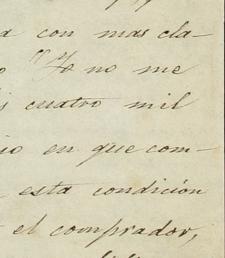 a con mas cla-
o "Yo no me
is cuatro mil
io en que com-
esta condición
el comprador,